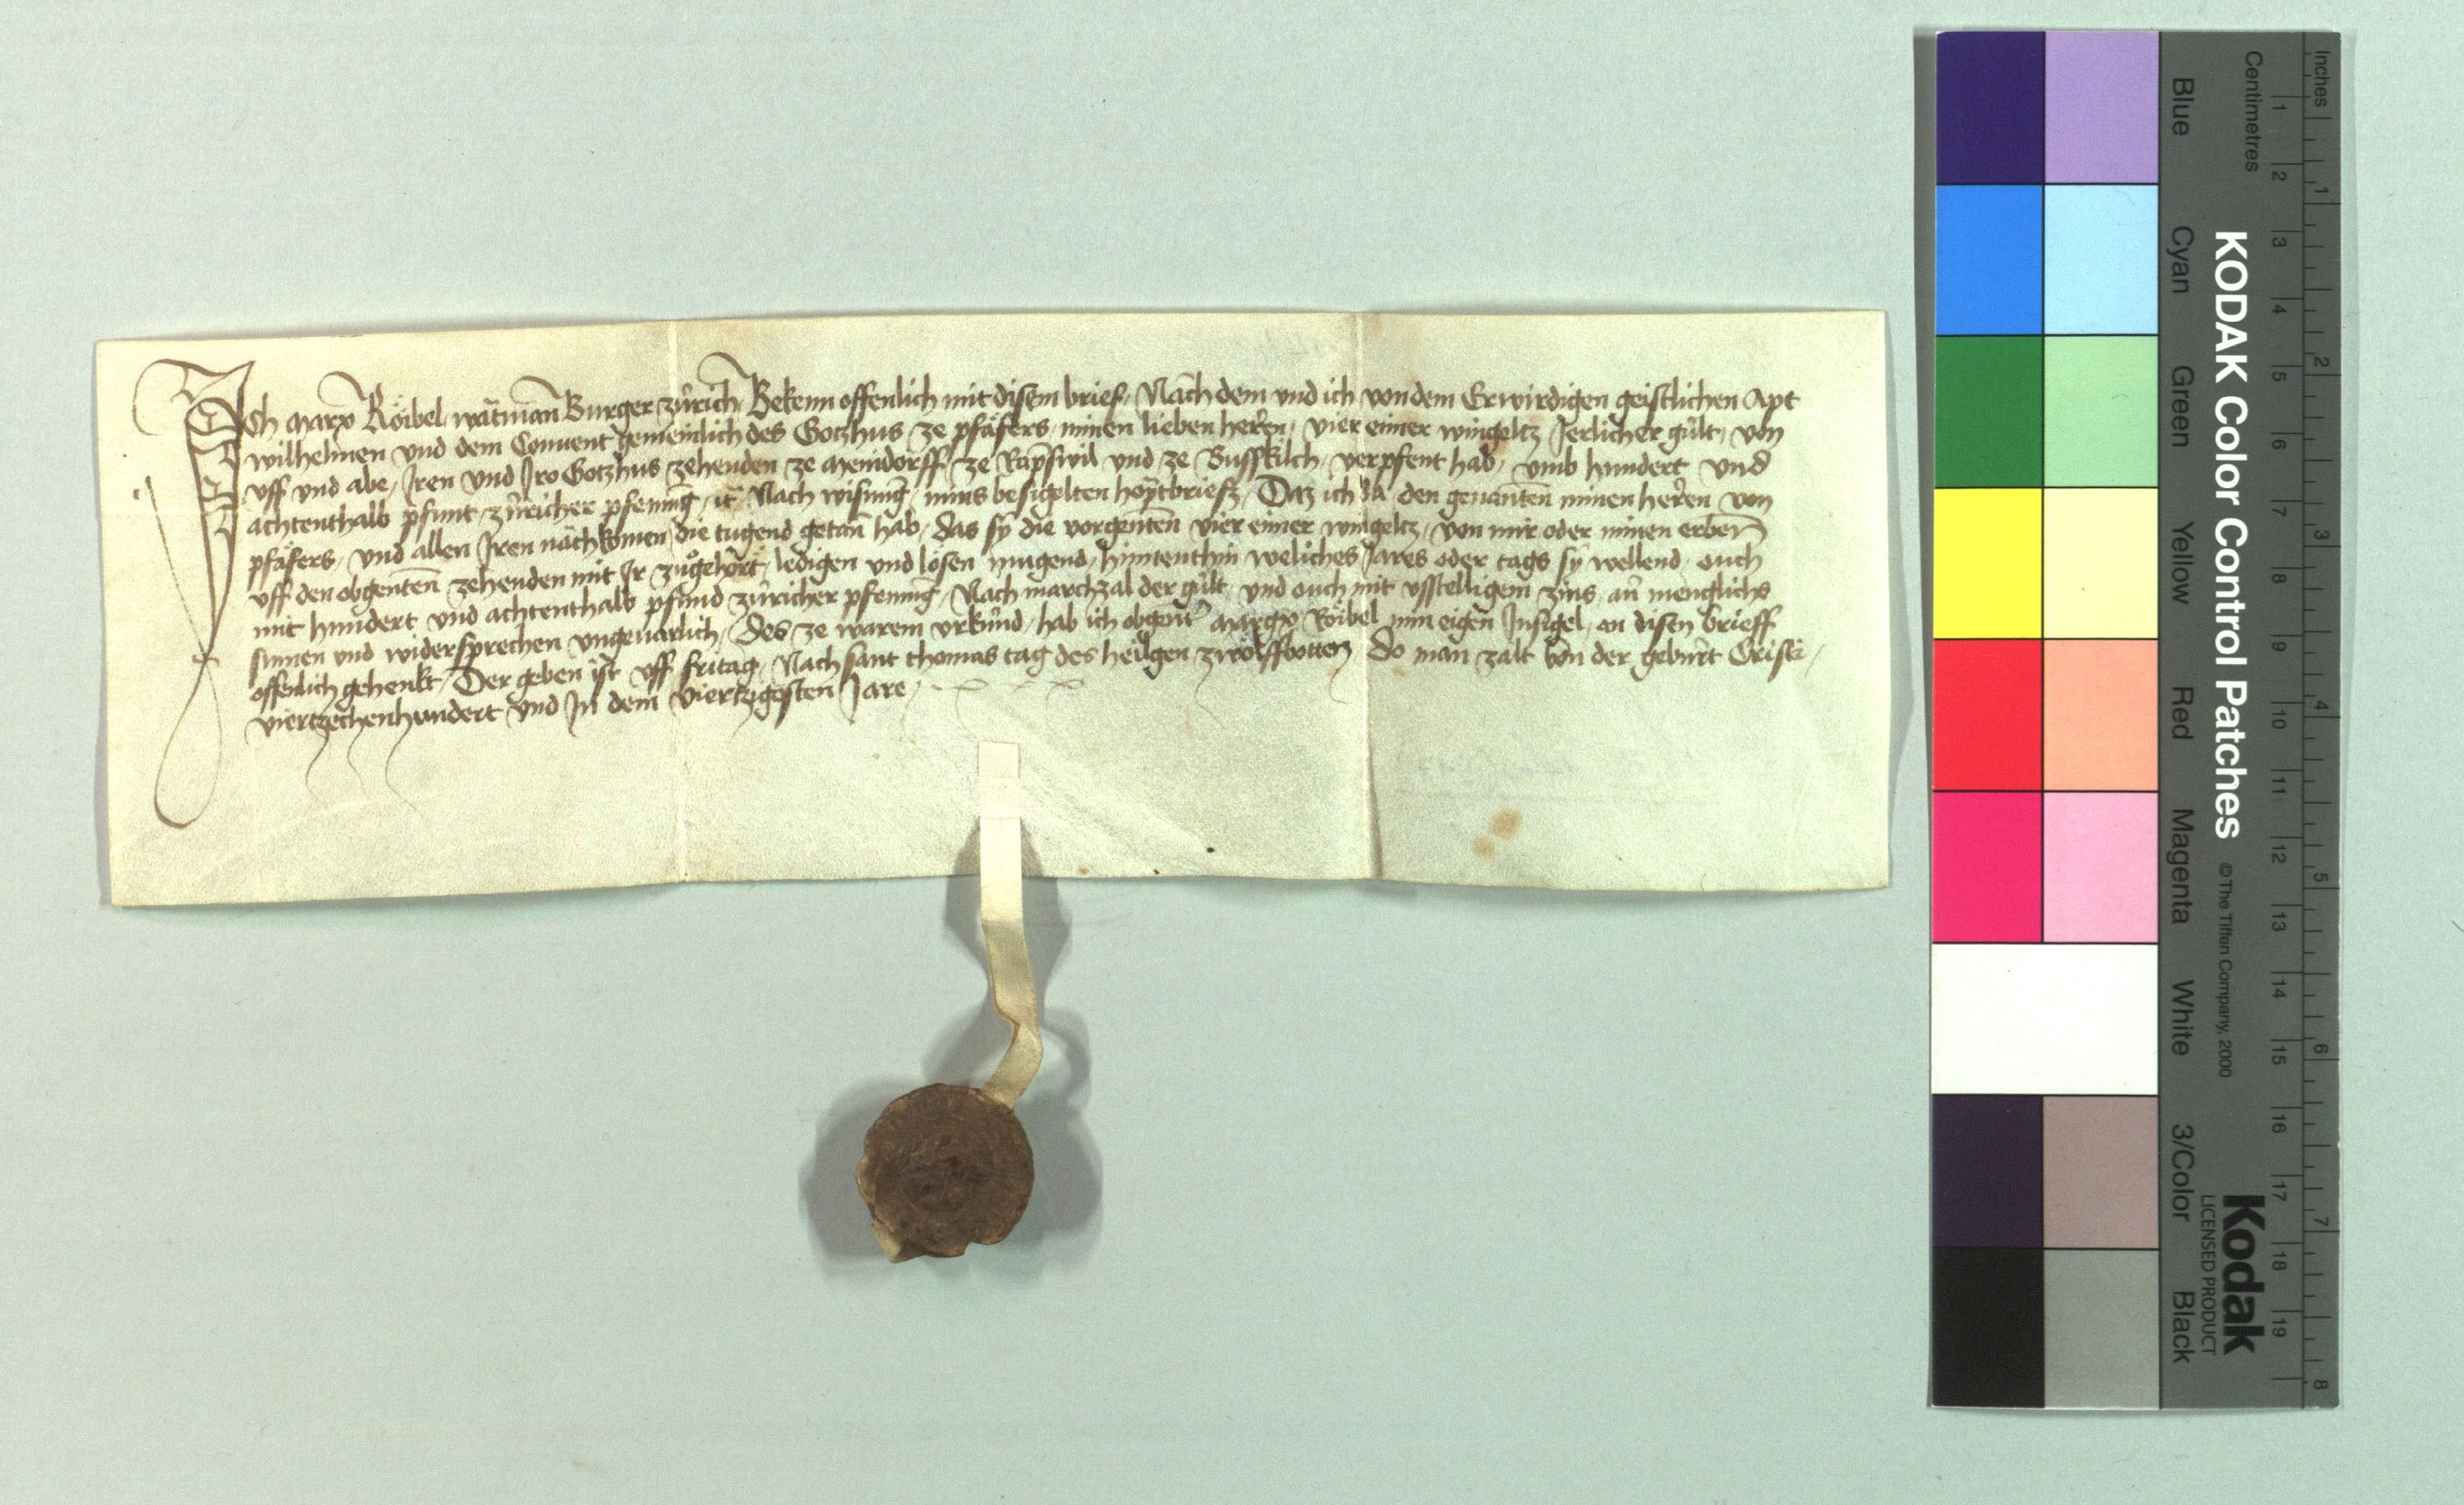 Ich marx Röibel wätman Burger zürich Bekenn offenlich mit disem brief / Nach dem und ich von dem Erwirdigen geistlichen Apt
wilhelmen vnd dem Conuent gemeinlich des Gotzhus ze pfäfers / minen lieben herren / vier eimer wingeltz Jerlicher gült / von
vff vnd abe / Iren vnd Iro Gotzhus zehenden ze menidorff ze Rapfwil vnd ze Busskilch / verpfent hab / vmb hundert vnd
achtenthalb pfunt zúricher pfennīg / Nach wisung / mins besigelten hoptbriefz / Daz ich da den genanten minen herren von
pfäfers / vnd allen Iren nachkomen die tugend getan hab / das sy die vorgenten vier eimer wingeltz / von mir oder minen erben
vff den obgenten zehenden mit Ir zůgehört / ledigen vnd lösen mugend / hinnenthin weliches Jares oder tags sÿ wellend / ouch
mit hundert vnd achtenthalb pfund zúricher pfennīg / Nach marchzal der gült / vnd ouch mit vsstelligem zins / an menglichs
sumen vnd widersprechen vngeuarlich / Des ze warem vrkúnd / hab ich obgenter margx Röibel min eigen Insigel / an disen brieff
offenlich gehenkt / Der geben ist vff fritag / Nach sant thomas tag des heilgen zwölffbotten Do man zalt von der geburt Cristi /
viertzechenhundert vnd In dem viertzigesten Jare /
Inches
Centimetres
1 2 3 4 5 6 7 8 9 10 11 12 13 14 15 16 17 18 19
1 2 3 4 5 6 7 8
KODAK Color Control Patches
© The Tiffen Company, 2000
Kodak
LICENSED PRODUCT
Blue
Cyan
Green
Yellow
Red
Magenta
White
3/Color
Black